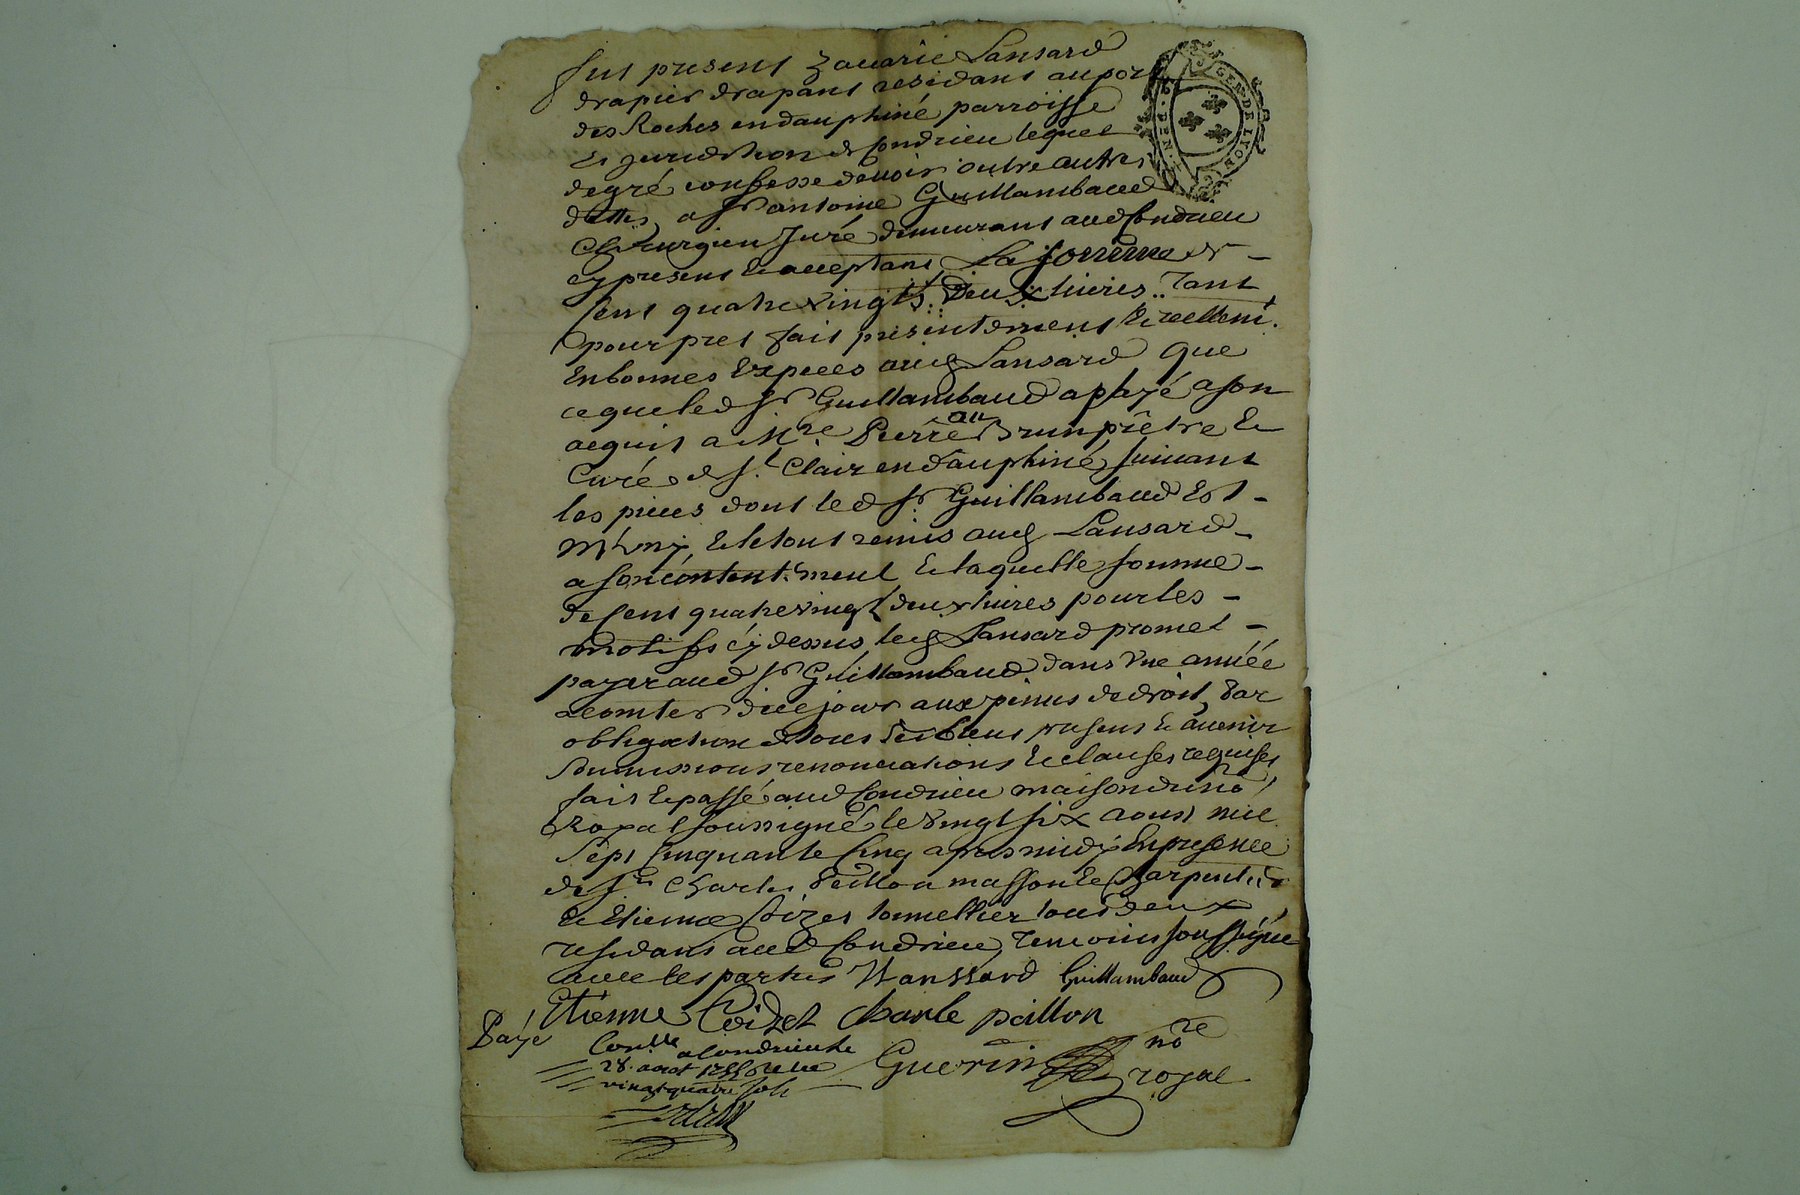 fut present Zacarie Lansard
drapier drapant residant au port
des Roches en dauphiné parroisse
et juridiction de Condrieu lequel
de gré confesse devoir outre autres
dettes a Sr antoine Guillambaud
Chirurgien Juré demeurant aud Condrieu
cy present et acceptant La somme de -
Cent quatre vingts Deux livres .. Tant
pour pret fait presentement et reellemt.
En bonnes Especes audt Lansard que
ce que led Sr Guillambaud a payé a son
acquit a Mre Pierre an Brun prêtre et
Curé de St Clair en dauphiné suivant
les pieces dont led Sr. Guillambaud Est -
muny, et le tout remis audt Lansard -
a son contentement et laquelle somme -
de Cent quatre vingt deux livres pour les -
motifs cy dessus, ledt Lansard promet -
payer aud Sr Guillambaud dans Une année
a comter de ce jour aux peines de droit, par
obligation de tous ses biens presens et avenir
soumissions renonciations et clauses requises
fait et passé aud Condrieu maison du no.re
Royal soussigné le vingt six aoust mil
Sept Cinquante Cinq apres midy En presence
de Sr Charles Peillon masson et Charpentier
et Etienne Coizet tonnellier tous deux
residans aud Condrieu, temoins soussignés
avec les parties Z Lanssard Guillambaud
Etienne Coizet charle peillon
Payé
Con.lle a Condrieu le
28. aoot 1755 Recu
vingt quatre sols
Guerin no.re
royal
GEN. DE LYON